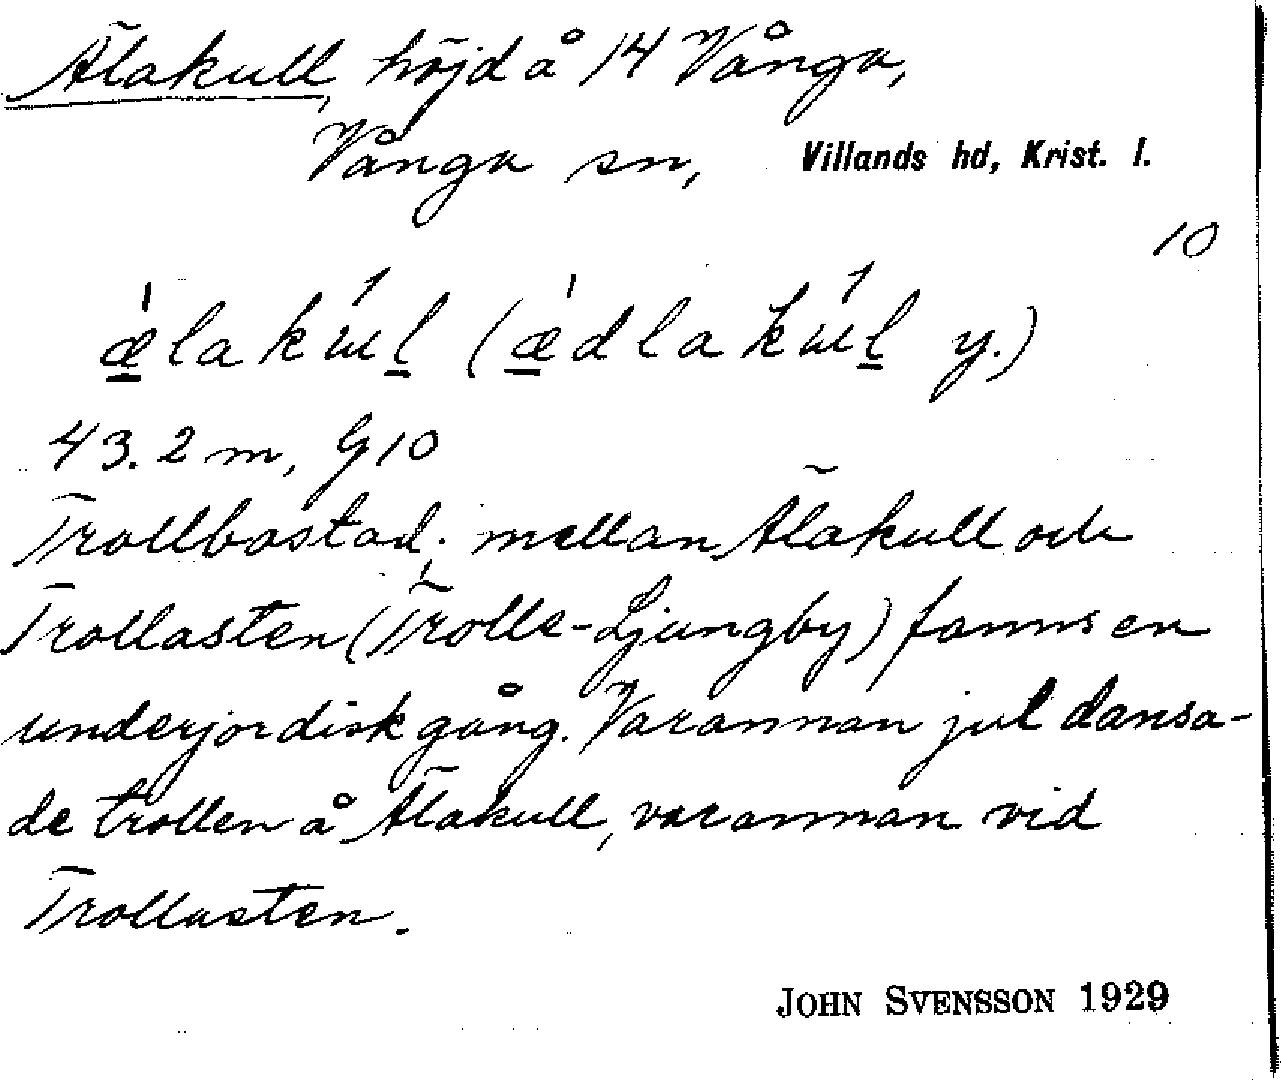 Älakull, höjd å 14 Vånga,
Vånga sn, Villands hd, Krist. l.
10
ǽlakúl (ǽdlakúl y.)
43.2 m, G10
Trollbostad; mellan Älakull och
Trollasten (Trolle-Ljungby) fanns en
underjordisk gång. Varannan jul dansa-
de trollen å Älakull, varannan vid
Trollasten.
JOHN SVENSSON 1929